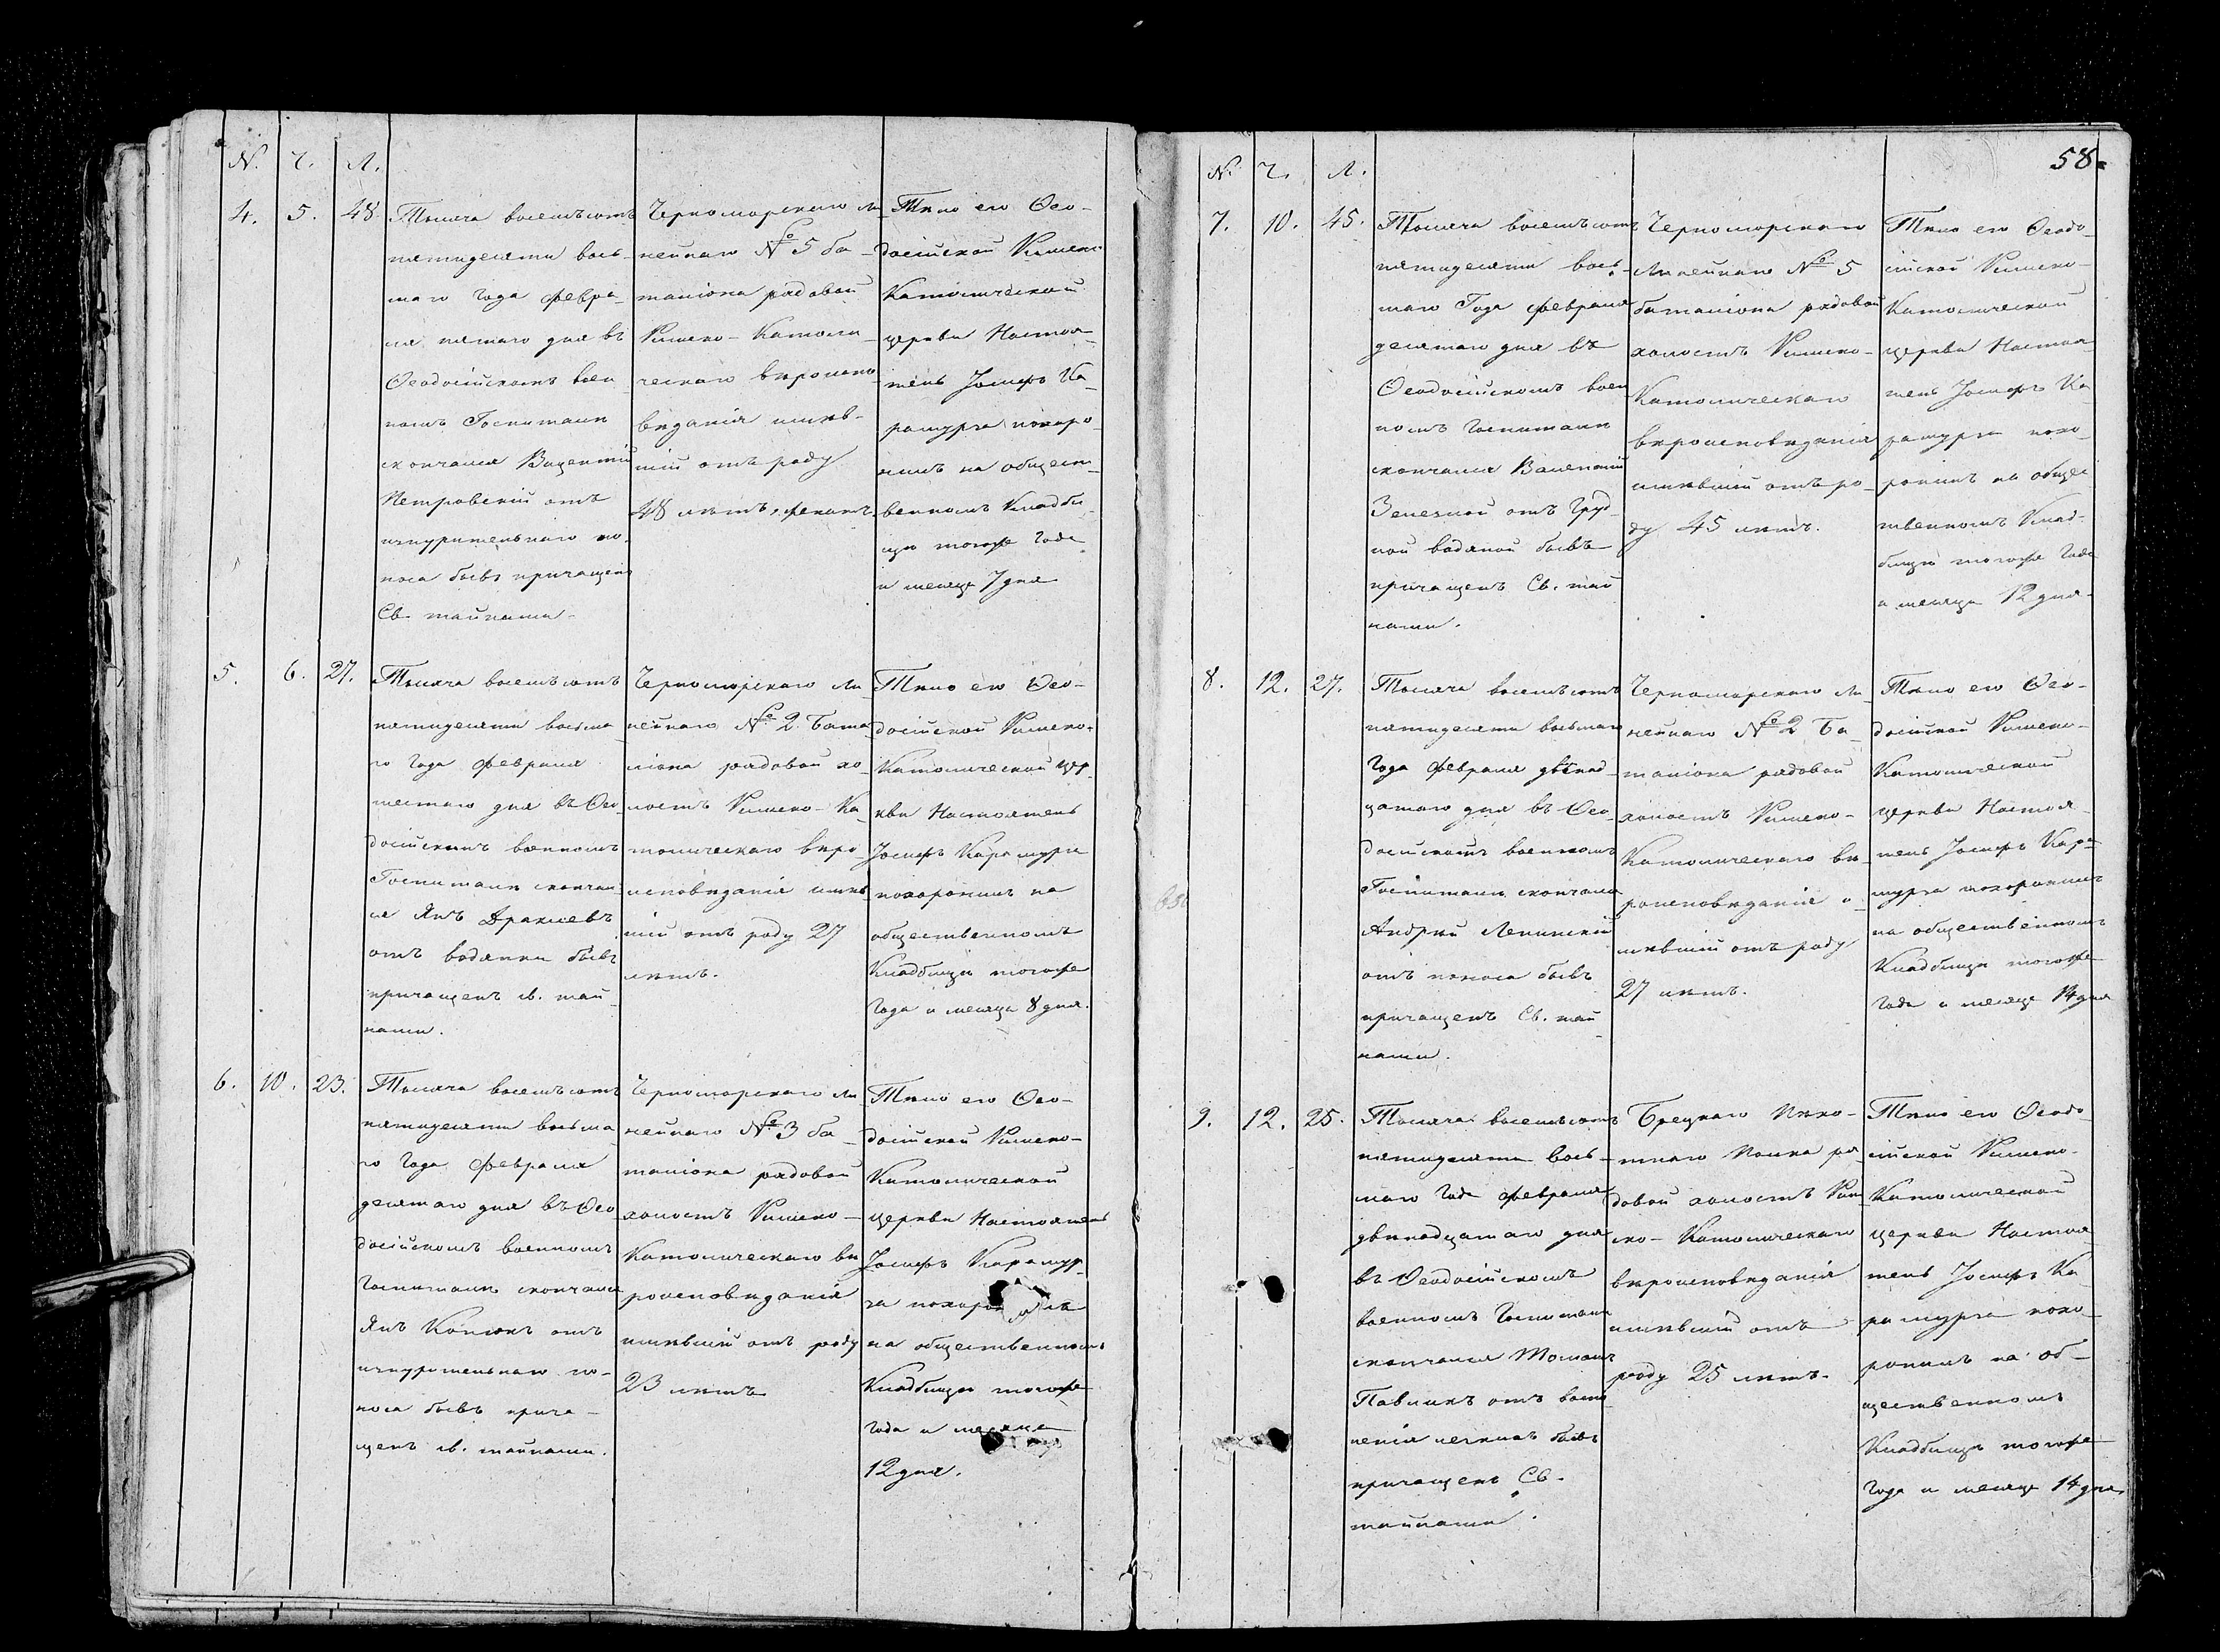 N. Ч. Л.
4. 5. 48.
Тысяча восемьсотъ
пятидесяти вось-
маго Года февра-
ля пятаго дня въ
Ѳеодосійскомъ воен
номъ Госпиталѣ
скончался Вицентій
Петровскій отъ
изнурительнаго по-
носа бывъ причащенъ
Св. тайнами.
Черноморскаго Ли
нейнаго № 5 ба-
таліона рядовой
Римско-Католи-
ческаго вѣроиспо
вѣданія имѣв-
шій отъ роду
48 лѣтъ, женатъ
Тѣло его Ѳео-
досійской Римско
Католической
церкви Настоя-
тель Іосифъ Ка-
рамурза похоро-
нилъ на общест-
венномъ Кладби-
щѣ тогоже Года
и месяца 7 дня
5. 6. 27.
Тысяча восемьсотъ
пятидесяти восьма
го Года февраля
шестаго дня въ Ѳео
досійскомъ военномъ
Госпиталѣ скончал
ся Янъ
отъ водянки бывъ
причащенъ св. тай
нами.
Черноморскаго Ли
нейнаго № 2 Бата
ліона рядовой хо-
лостъ Римско-Ка-
толическаго вѣро
исповѣданія имѣв
шій отъ роду 27
лѣтъ.
Тѣло его Ѳео-
досійской Римско-
Католической цер-
кви Настоятель
Іосифъ Карамурза
похоронилъ на
общественномъ
Кладбищѣ тогоже
Года и месяца 8 дня.
6. 10. 23.
Тысяча восемьсотъ
пятидесяти восьма-
го Года февраля
десятаго дня въ Ѳео
досійскомъ военномъ
Госпиталѣ скончался
Янъ отъ
изнурительнаго по-
носа бывъ прича-
щенъ св. тайнами.
Черноморскаго Ли
нейнаго № 3 ба-
таліона рядовой
холостъ Римско-
Католическаго вѣ
роисповѣданія
имѣвшій отъ роду
23 лѣтъ
Тѣло его Ѳео-
досійской Римско-
Католической
церкви Настоятель
Іосифъ Карамур-
за похоронилъ
на общественномъ
Кладбищѣ тогоже
Года и месяца
12 дня.
58.
N. Ч. Л.
7. 10. 45.
Тысяча восемьсотъ
пятидесяти вось-
маго Года февраля
десятаго дня въ
Ѳеодосійскомъ воен
номъ Госпиталѣ
скончался Валентій
отъ Груд-
ной водяной бывъ
причащенъ Св. тай
нами.
Черноморскаго
Линейнаго № 5
баталіона рядовой
холостъ Римско-
Католическаго
вѣроисповѣданія
имѣвшій отъ ро-
ду 45 лѣтъ.
Тѣло его Ѳеодо-
сійской Римско-
Католической
церкви Настоя-
тель Іосифъ Ка
рамурза похо-
ронилъ на общес
твенномъ Клад-
бищѣ тогоже Года
и месяца 12 дня.
8. 12. 27.
Тысяча восемьсотъ
пятидесяти восьмаго
Года февраля двѣнад-
цатаго дня въ Ѳео-
досійскомъ военномъ
Госпиталѣ скончался
Андрей Лепинскій
отъ поноса бывъ
причащенъ Св. тай-
нами.
Черноморскаго Ли
нейнаго № 2 Ба-
таліона рядовой
холостъ Римско-
Католическаго вѣ-
роисповѣданія и-
мѣвшій отъ роду
27 лѣтъ.
Тѣло его Ѳео-
досійской Римско-
Католической
церкви Настоя-
тель Іосифъ Кара-
мурза похоронилъ
на общественномъ
Кладбищѣ тогоже
Года и месяца 14 дня
9. 12. 25.
Тысяча восемьсотъ
пятидесяти вось-
маго Года февраля
двѣнадцатаго дня
въ Ѳеодосійскомъ
военномъ Госпиталѣ
скончался Томашъ
Павликъ отъ воспа
ленія легкихъ бывъ
причащенъ Св.
тайнами.
пѣхо-
тнаго Полка ря-
довой холостъ Рим
ско-Католическаго
вѣроисповѣданія
имѣвшій отъ
роду 25 лѣтъ.
Тѣло его Ѳеодо-
сійской Римско-
Католической
церкви Настоя-
тель Іосифъ Ка-
рамурза похо-
ронилъ на об-
щественномъ
Кладбищѣ тогоже
Года и месяца 14 дня.